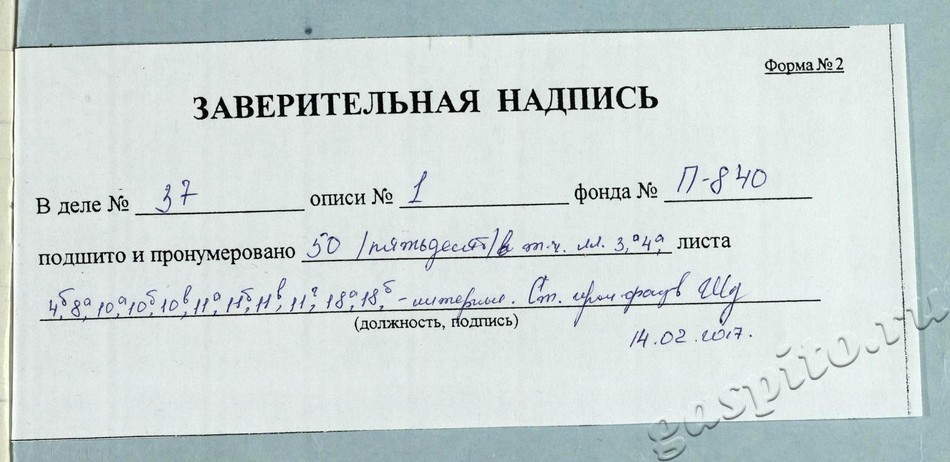 Форма № 2
ЗАВЕРИТЕЛЬНАЯ НАДПИСЬ
В деле № 37 описи № 1 фонда № П-840
подшито и пронумеровано 50 /пятьдесят/ в т.ч. лл. 3а, 4а, листа
4б, 8а, 10а, 10б, 10в, 11а, 11б, 11в, 11г, 18а, 18б, - литерные. Ст. хран. фондов
(должность, подпись)
14.02.2017.
gaspito.ru